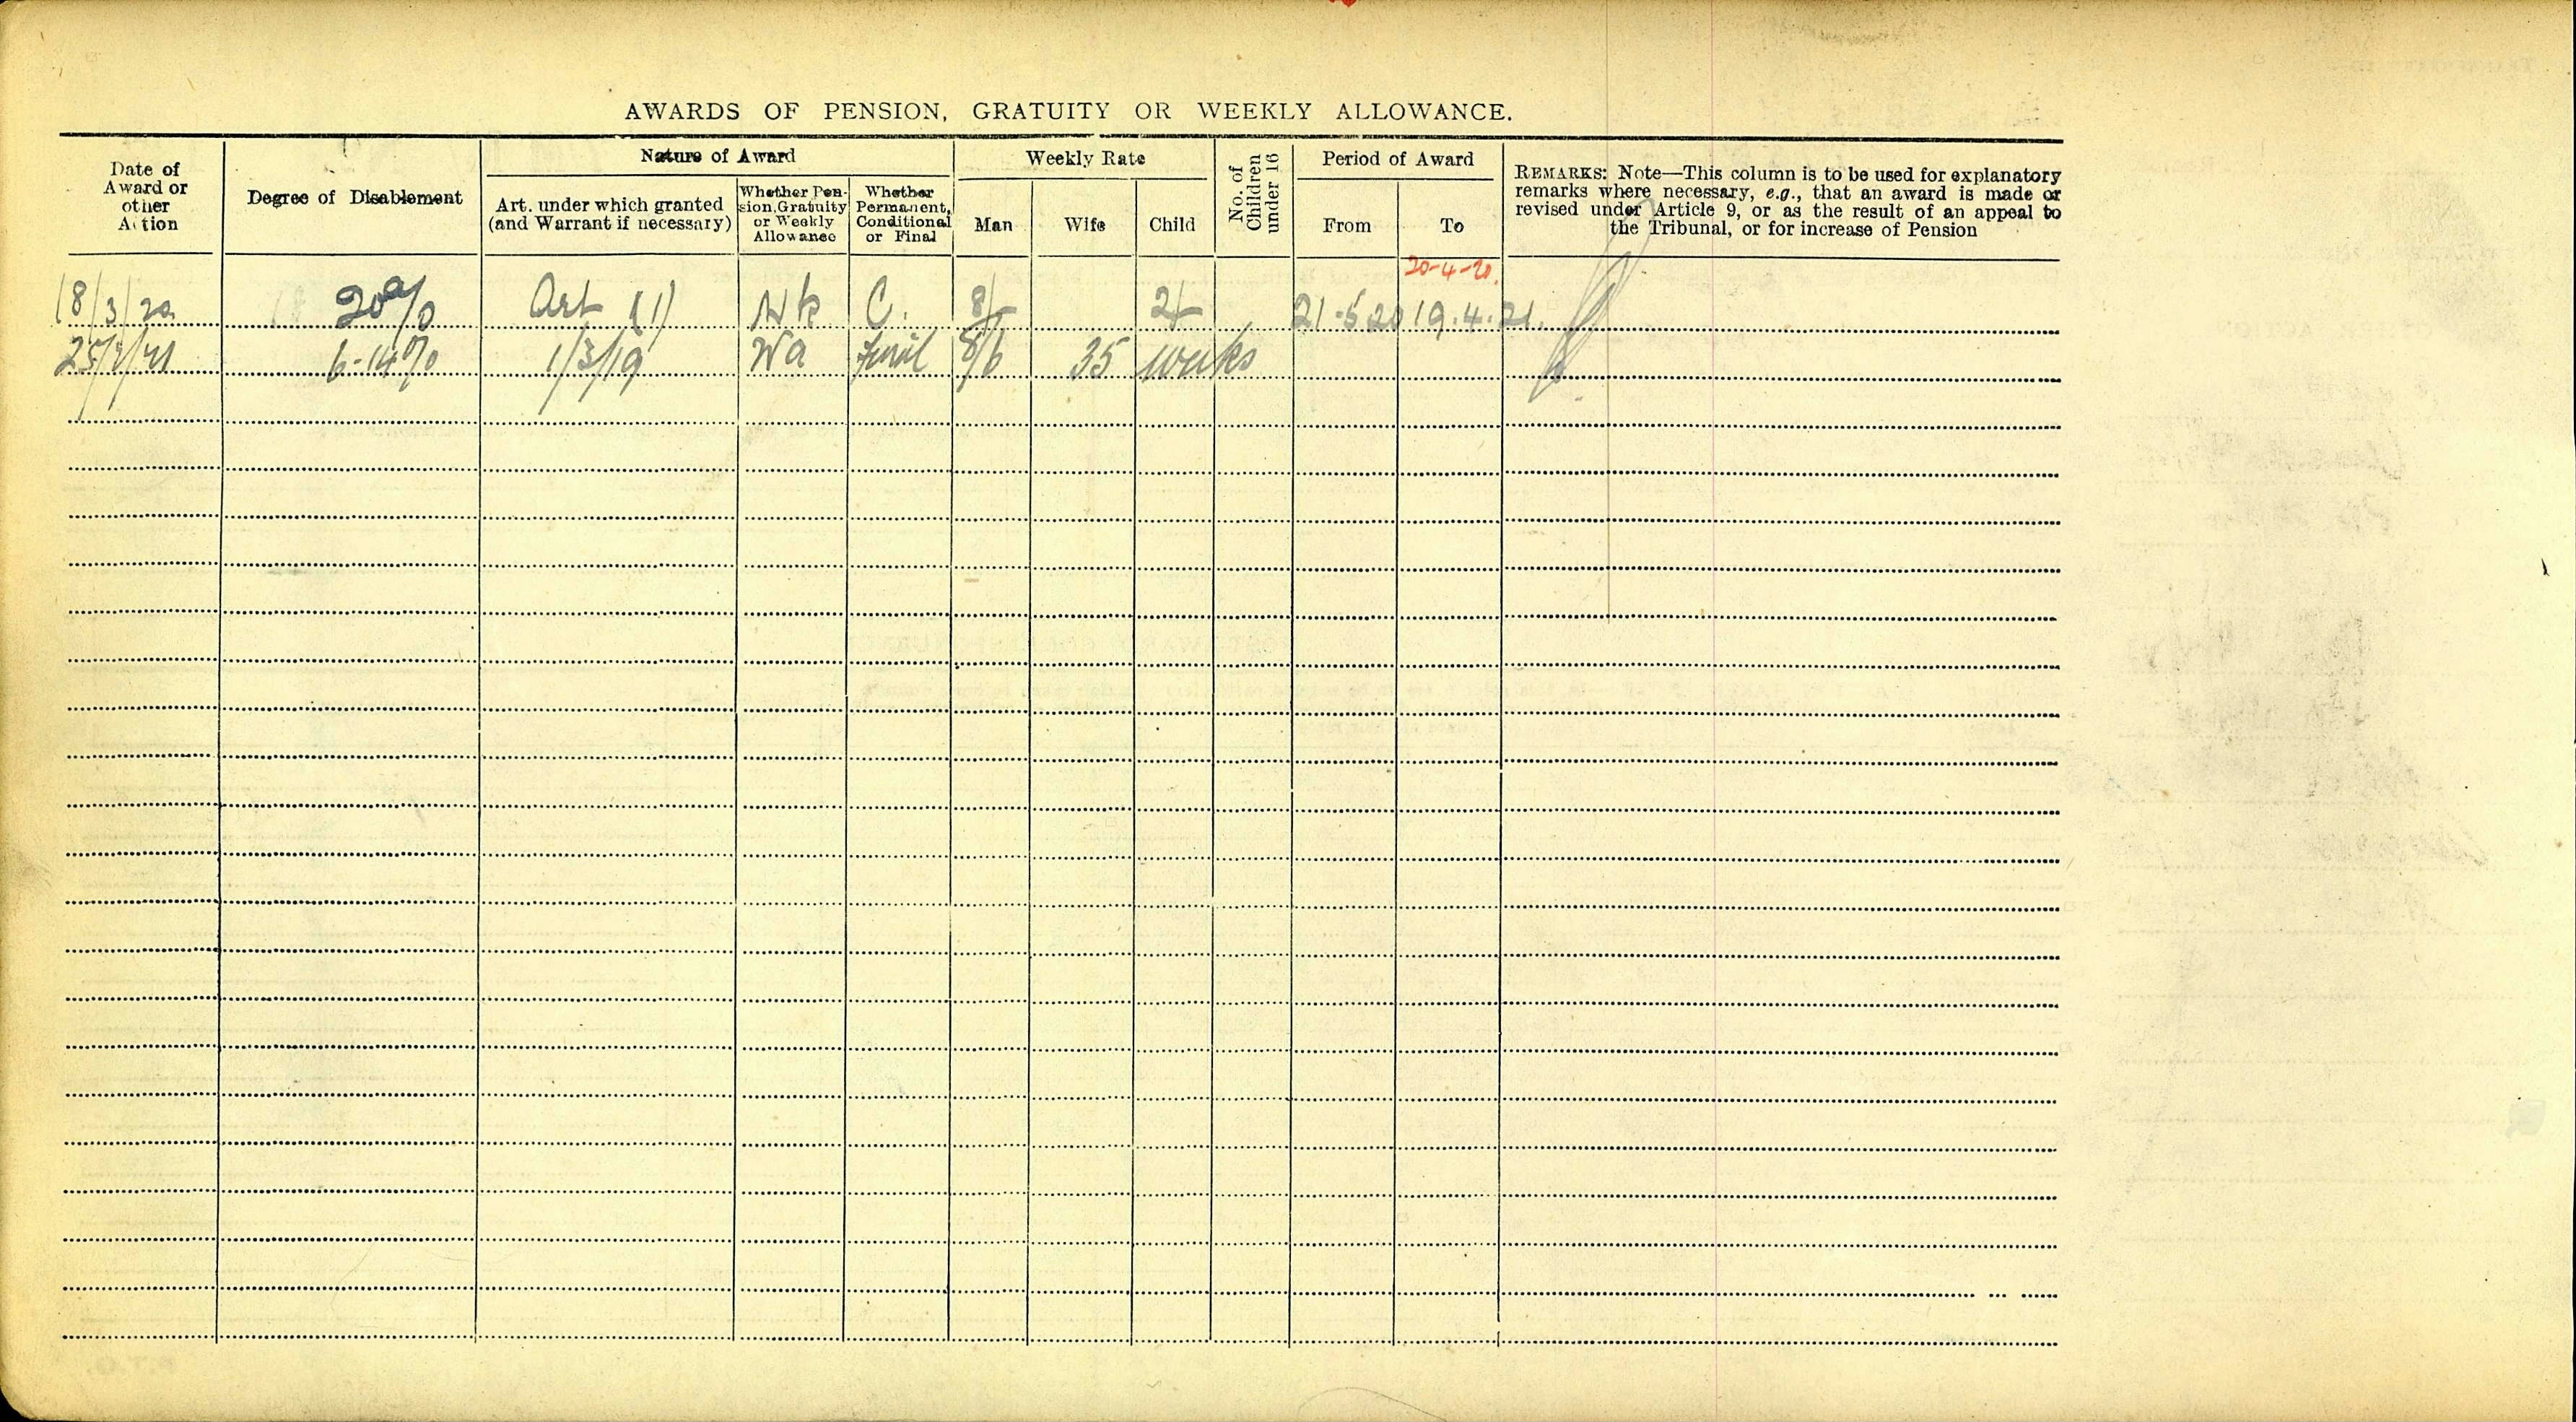 AWARDS OF PENSION, GRATUITY OR WEEKLY ALLOWANCE.
Date of Award or other Action
Degree of Disablement
Nature of Award
Art. under which granted (and Warrant if necessary)
Whether Pension, Gratuity or Weekly Allowance
Whether Permanent, Conditional or Final
Weekly Rate
Man
Wife
Child
No. of Children under 16
Period of Award
From
To
REMARKS: Note—This column is to be used for explanatory
remarks where necessary, e.g., that an award is made or
revised under Article 9, or as the result of an appeal to
the Tribunal, or for increase of Pension
20-4-20.
18/3/20 20% Art (1) C. 8/- 2/- 21-5 20 19.4.21.
6-14% 1/3/19 Wa Final 8/6 35 weeks